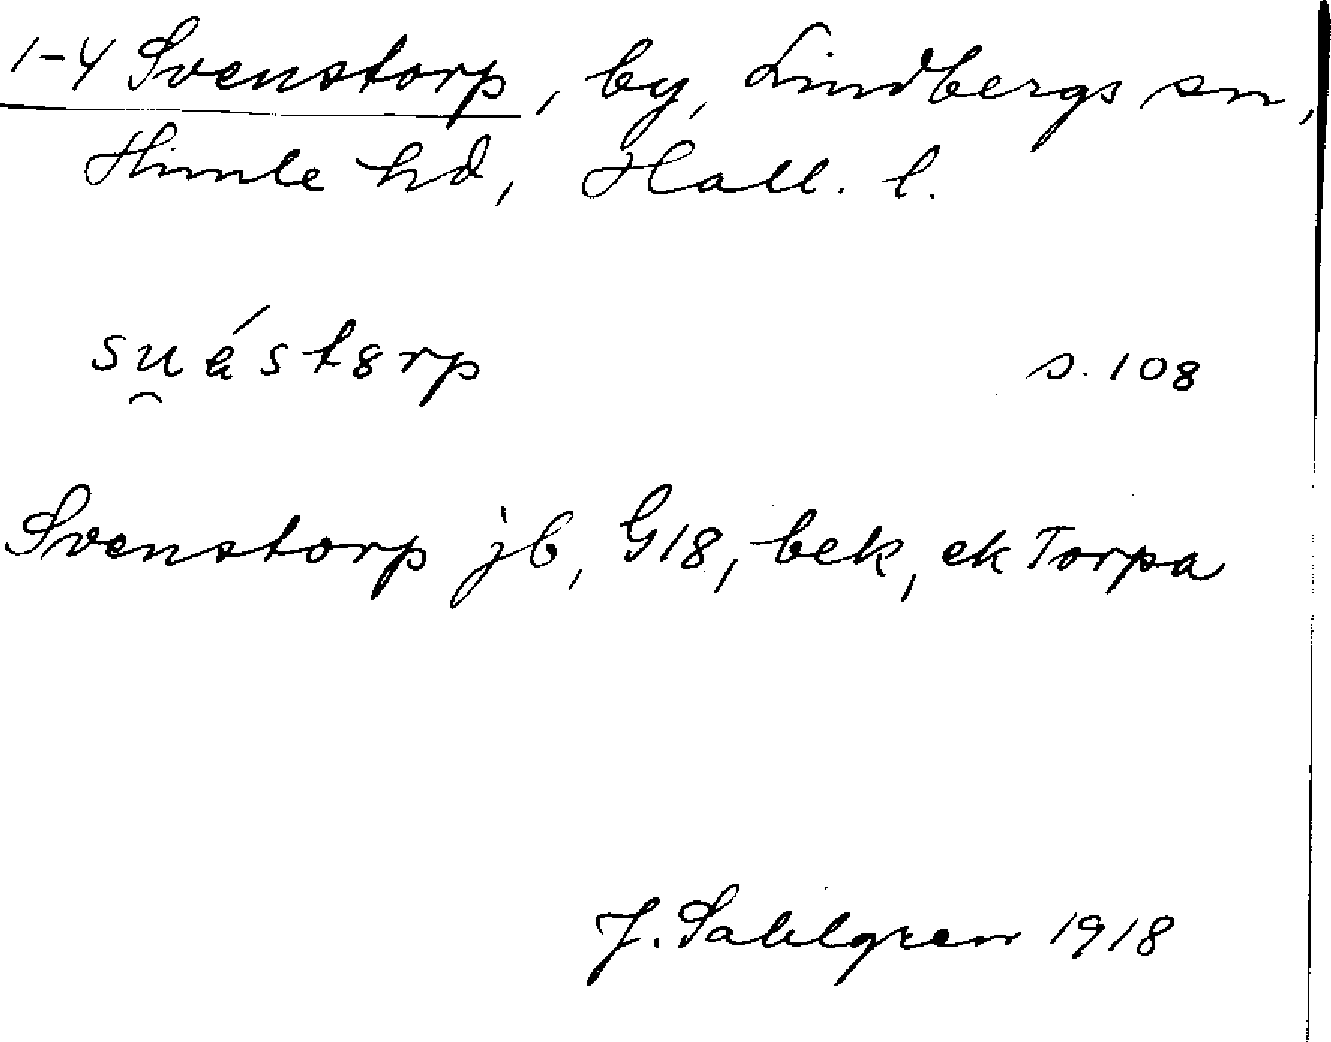 1-4 Svenstorp, by, Lindbergs sn,
Himle hd, Hall. l.
su̯ástorp s. 108
Svenstorp jb, G18, bek, ek Torpa
J. Sahlgren 1918